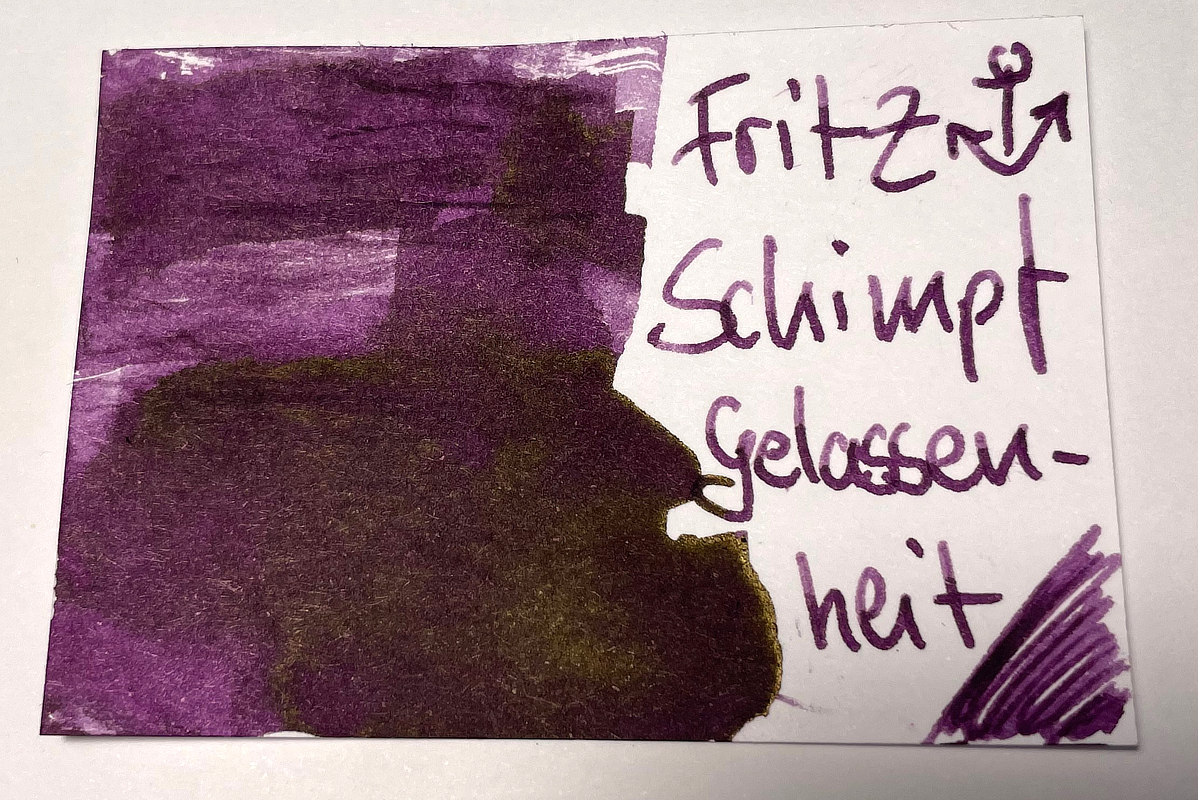 Fritz
Schimpf
Gelassen-
heit